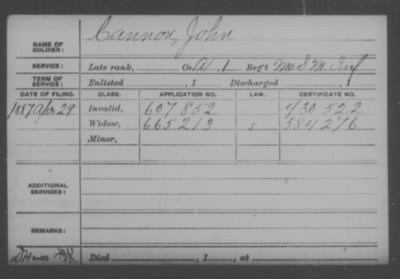 Cannox, John
NAME OF SOLDIER:
SERVICE: Late rank, Co. A, 1 Reg't Mo S M Inf
TERM OF SERVICE: Enlisted , 1 Discharged , 1
DATE OF FILING. CLASS. APPLICATION NO. LAW. CERTIFICATE NO.
1887 Apr 29 Invalid, 607 852 430 522
Widow, 665213 384 276
Minor,
ADDITIONAL SERVICES:
REMARKS:
Died , 1 , at